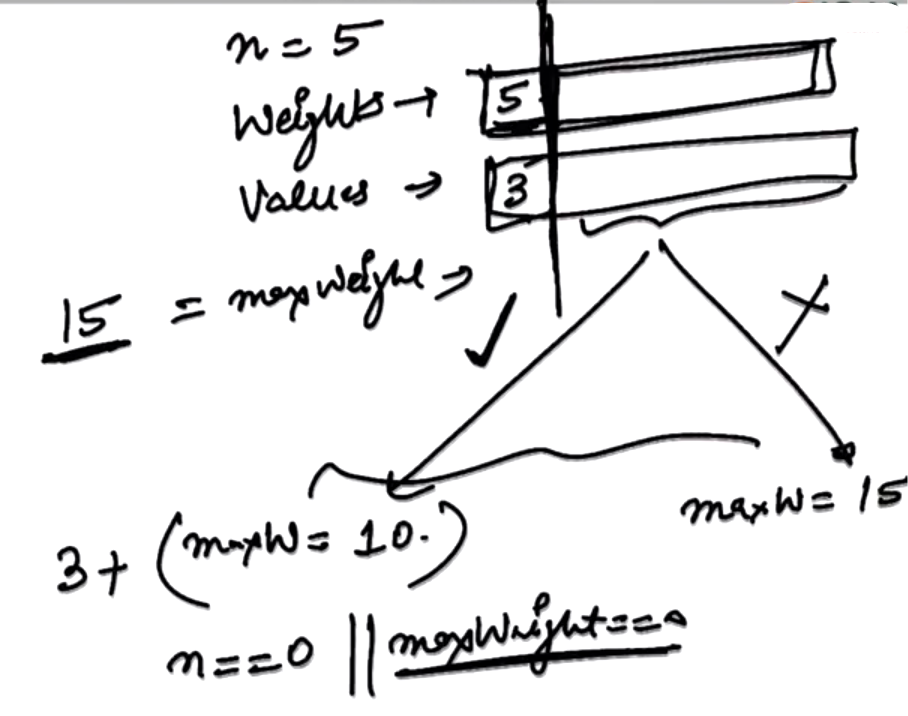 n = 5
Weights → 5
Values → 3
15 = maxWeight →
maxW = 15
3 + (maxW = 10.)
n==0 || maxWeight==0